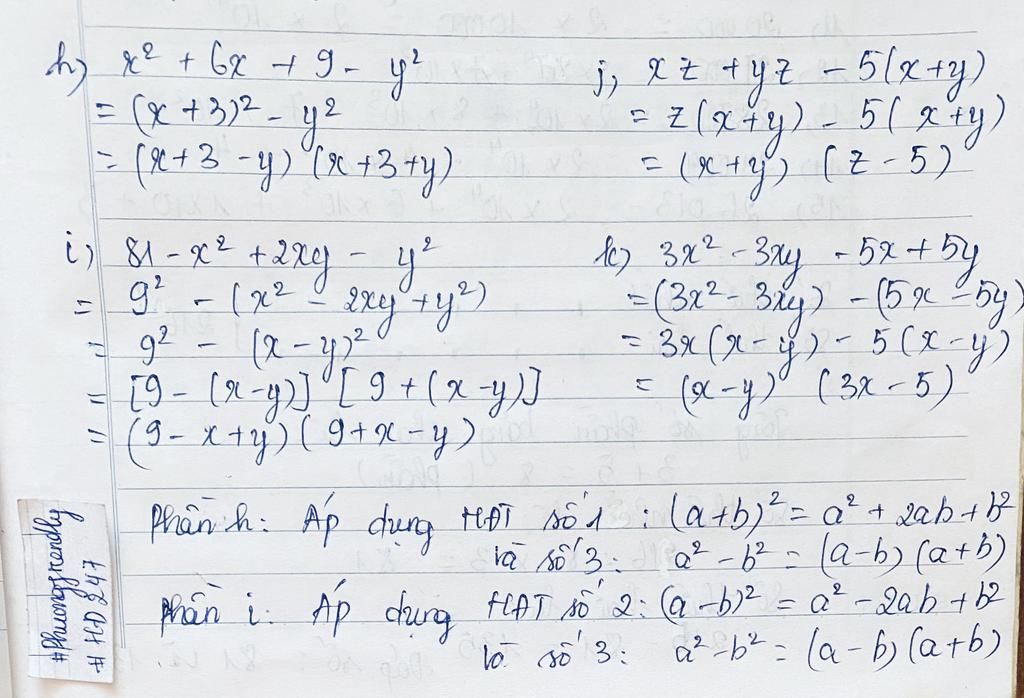 h) x² + 6x + 9 - y²
= (x+3)² - y²
= (x+3-y) (x+3+y)
j, xz + yz - 5(x+y)
= z(x+y) - 5(x+y)
= (x+y) (z-5)
i) 81 - x² + 2xy - y²
= 9² - (x² - 2xy + y²)
= 9² - (x-y)²
= [9 - (x-y)] [9 + (x-y)]
= (9-x+y) (9+x-y)
k) 3x² - 3xy - 5x + 5y
= (3x² - 3xy) - (5x - 5y)
= 3x(x-y) - 5(x-y)
= (x-y) (3x-5)
Phần h: Áp dụng HĐT số 1 : (a+b)² = a² + 2ab + b²
và số 3: a² - b² = (a-b) (a+b)
Phần i: Áp dụng HĐT số 2: (a-b)² = a² - 2ab + b²
và số 3: a² - b² = (a-b) (a+b)
#HD247